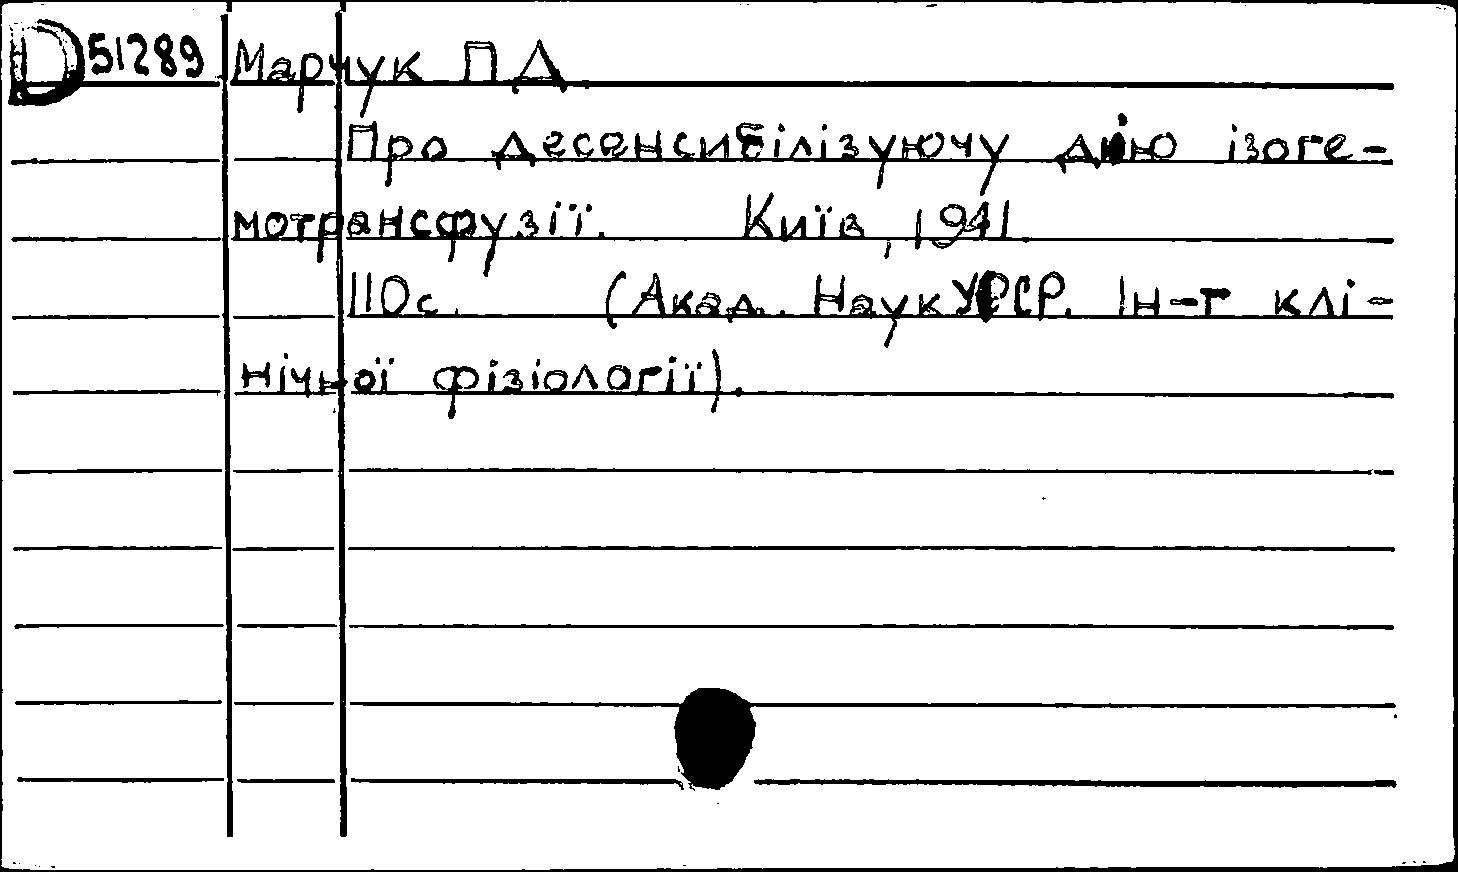 D 51289 Марчук П.Д.
Про десенсибілізуючу дію ізоге-
мотрансфузії. Київ, 1941.
110с. (Акад. Наук УРСР. Ін-т клі-
нічної фізіології).